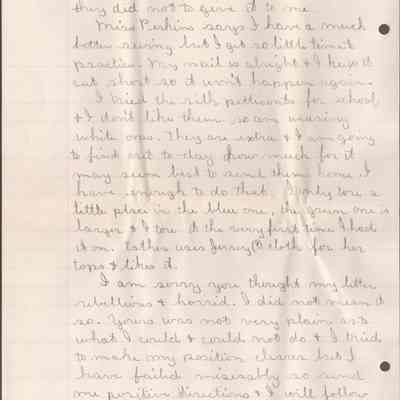 they did not to give it to me.
Miss Perkins says I have a much
better swing but I get so little time to
practice. My nail is alright & I keep it
cut short so it won't happen again.
I tried the silk petticoats for school
& I don't like them so am wearing
white ones. They are extra & I am going
to find out to-day how much for it
may seem best to send them home. I
have enough to do that. I only tore a
little place in the blue one, the green one is
larger & I tore it the very first time I had
it on. Esther uses Jersey(?) cloth for her
tops & likes it.
I am sorry you thought my letter
rebellious & horrid. I did not mean it
so. Yours was not very plain as to
what I could & could not do & I tried
to make my position clearer but I
have failed miserably so send
me positive directions & I will follow